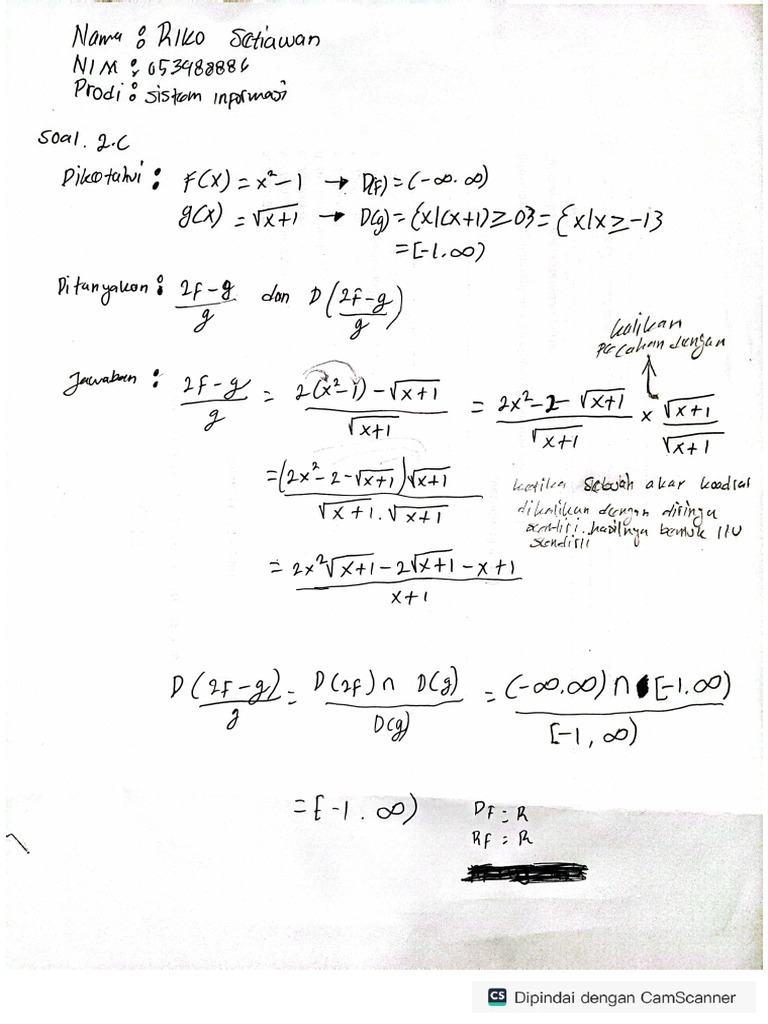 Nama : Riko Setiawan
NIM : 053988886
Prodi : sistem informasi
Soal. 2.C
Diketahui : F(x) = x² - 1 → D(F) = (-∞. ∞)
g(x) = √x+1 → D(g) = {x|(x+1) ≥ 0} = {x|x ≥ -1}
= [-1. ∞)
Ditanyakan : 2F-g/g dan D(2F-g/g)
kalikan
pecahan dengan
Jawaban : 2F-g/g = 2(x²-1) - √x+1/√x+1 = 2x²-2-√x+1/√x+1 × √x+1/√x+1
= (2x²-2-√x+1)√x+1/√x+1 . √x+1
ketika sebuah akar
dikalikan dengan dirinya
sendiri. hasilnya
sendiri
= 2x²√x+1 - 2√x+1 - x+1/x+1
D(2F-g)/g = D(2F) ∩ D(g)/D(g) = (-∞.∞) ∩ [-1.∞)/[-1, ∞)
= [-1. ∞)
DF = R
RF = R
CS Dipindai dengan CamScanner